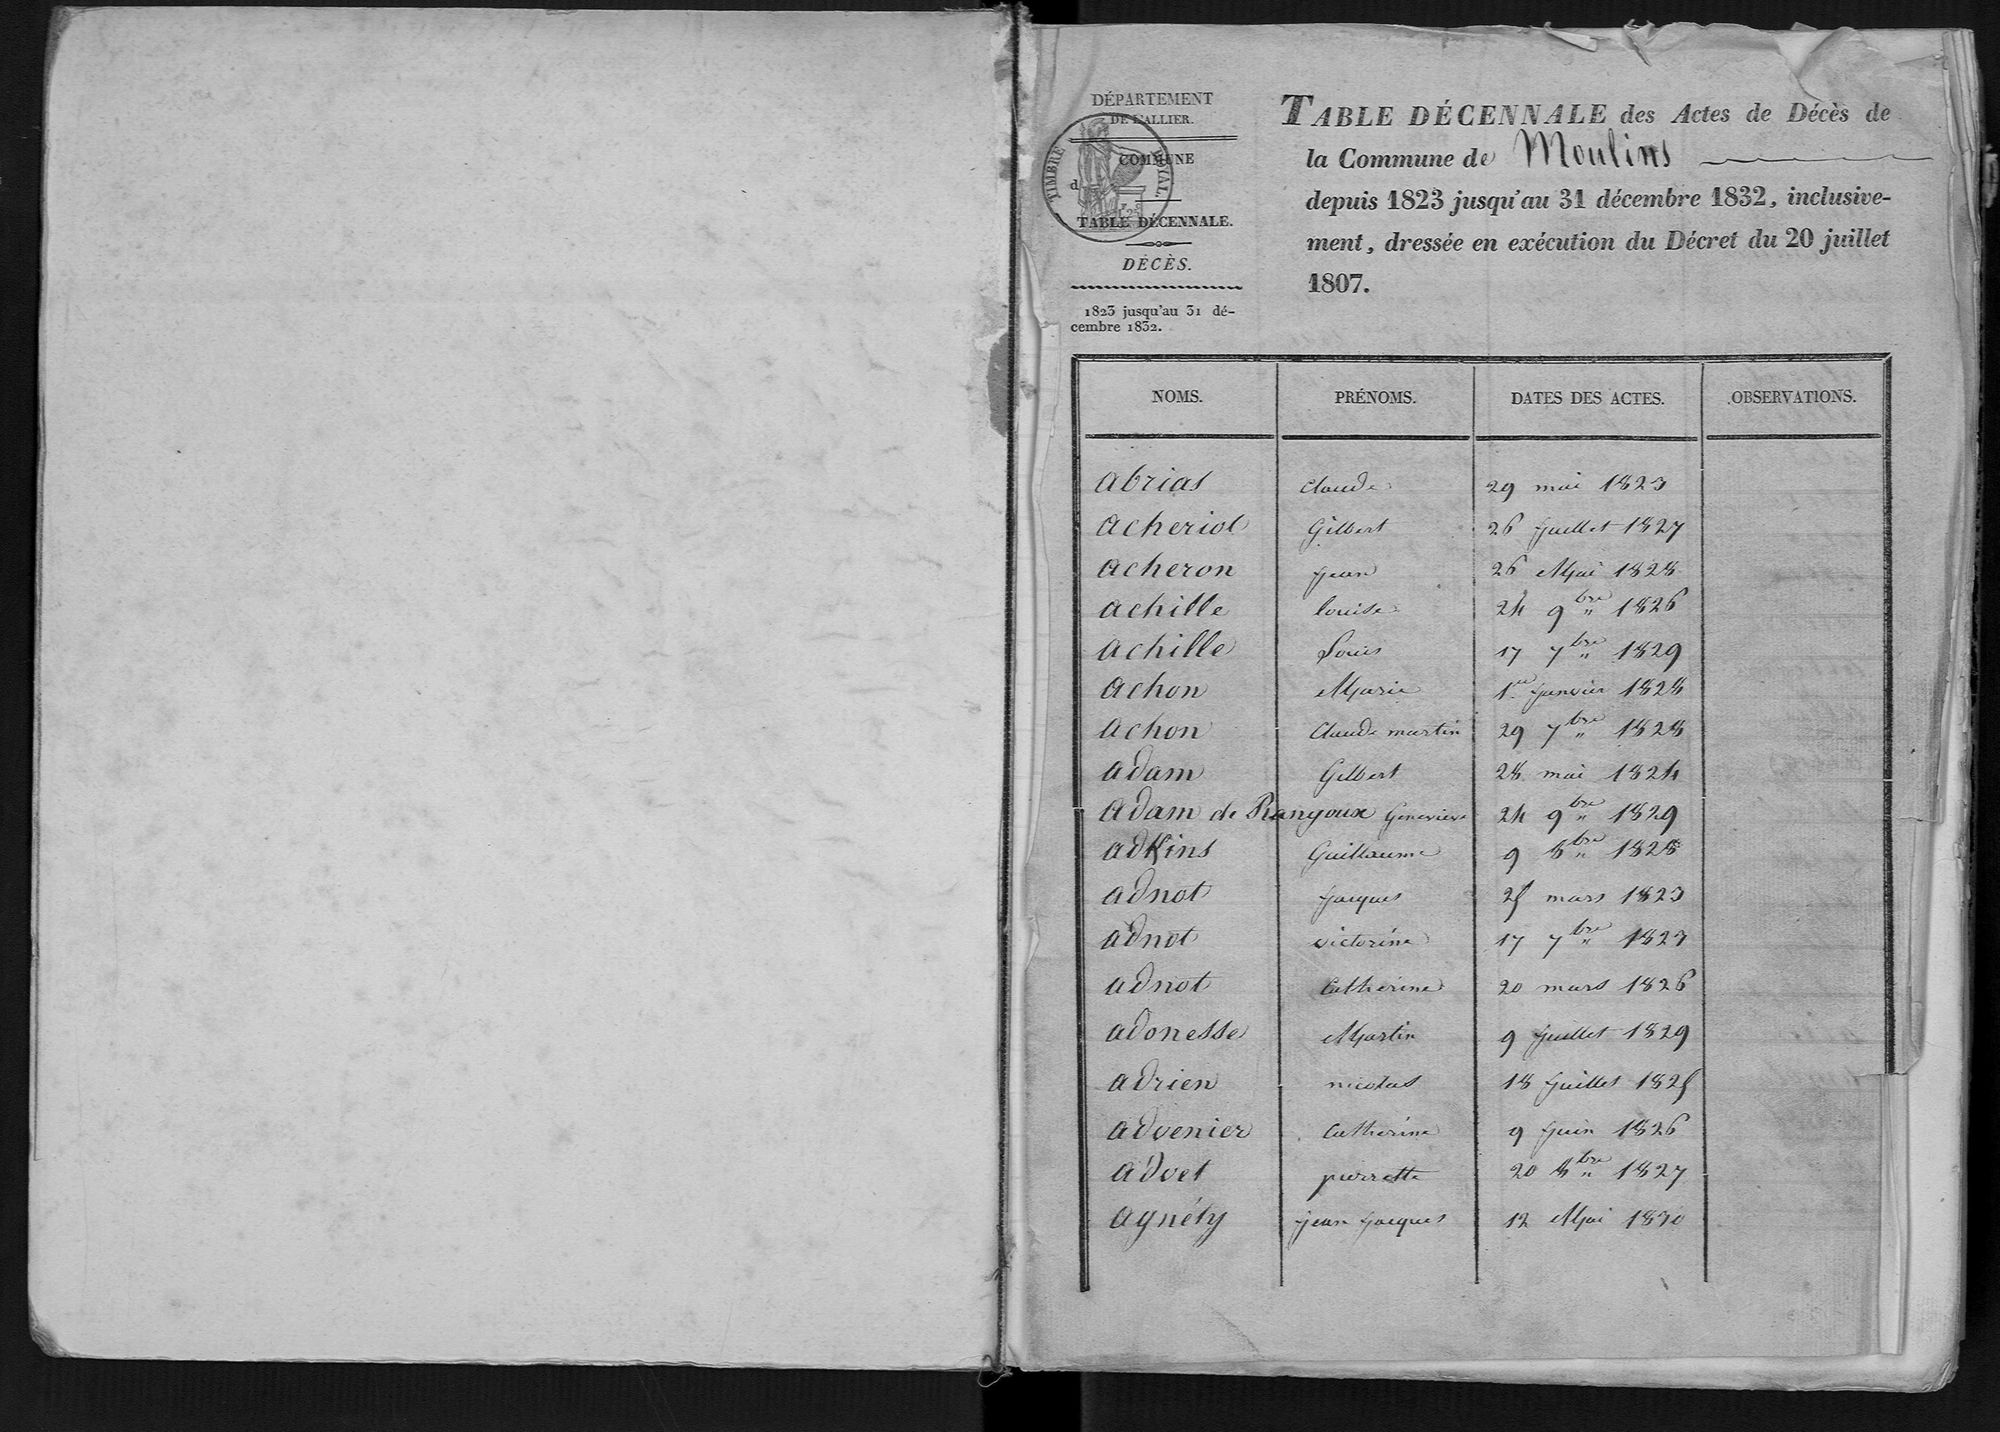 DÉPARTEMENT
DE L'ALLIER.
COMMUNE
d
TIMBRE ROYAL
TABLE DÉCENNALE.
DÉCÈS.
1823 jusqu'au 31 dé-
cembre 1832.
TABLE DÉCENNALE des Actes de Décès de
la Commune de Moulins
depuis 1823 jusqu'au 31 décembre 1832, inclusive-
ment, dressée en exécution du Décret du 20 juillet
1807.
NOMS. PRÉNOMS. DATES DES ACTES. OBSERVATIONS.
abrias Claude 29 mai 1823
acheriol Gilbert 26 juillet 1827
acheron jean 26 Mai 1828
achille louise 24 9bre 1826
achille Louis 17 7bre 1829
achon Marie 1er janvier 1828
achon Claude martin 29 7bre 1828
adam Gilbert 28 mai 1824
adam de Rangoux Genevieve 24 9bre 1829
adkins Guillaume 9 8bre 1828
adnot jacques 25 mars 1823
adnot victorine 17 7bre 1823
adnot Catherine 20 mars 1826
adonesse Martin 9 juillet 1829
adrien nicolas 18 juillet 1825
advenier Catherine 9 juin 1826
advet pierrette 20 8bre 1827
agnéty jean jacques 12 Mai 1830